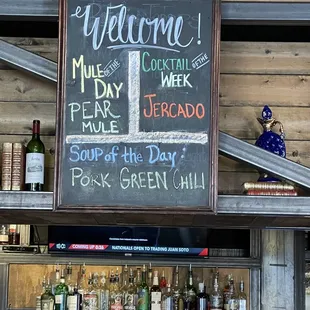 Welcome!
Mule of the Day
Pear Mule
Cocktail of the Week
Jercado
Soup of the Day:
Pork Green Chili
COMING UP 8:05 NATIONALS OPEN TO TRADING JUAN SOTO